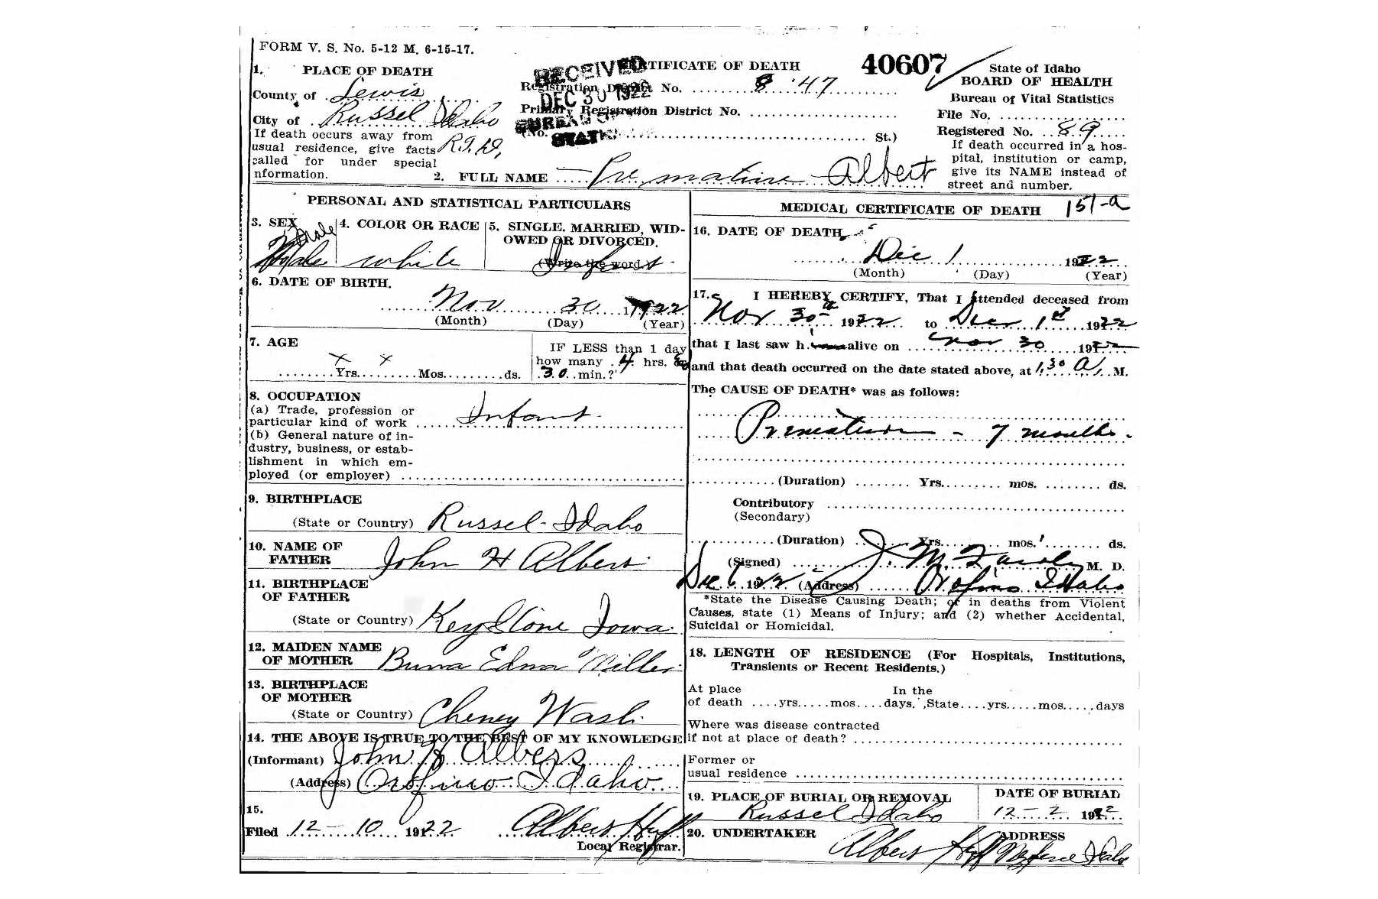 FORM V. S. No. 5-12 M. 6-15-17.
CERTIFICATE OF DEATH
40607
State of Idaho
BOARD OF HEALTH
Bureau of Vital Statistics
File No.
Registered No. 89
If death occurred in a hos-
pital, institution or camp,
give its NAME instead of
street and number.
RECEIVED
DEC 30 1922
BUREAU OF
STATI
1. PLACE OF DEATH
County of Lewis
City of Russel Idaho
If death occurs away from
usual residence, give facts
called for under special
nformation.
R.F.D.
Registration District No. 847
Primary Registration District No.
(No. St.)
2. FULL NAME Premature Albert
PERSONAL AND STATISTICAL PARTICULARS
3. SEX Male
4. COLOR OR RACE white
5. SINGLE, MARRIED, WID-
OWED OR DIVORCED.
(Write the word) Infant
6. DATE OF BIRTH.
Nov 30 1922
(Month) (Day) (Year)
7. AGE
x x
Yrs. Mos. ds.
IF LESS than 1 day
how many 4 hrs.
30 min.?
8. OCCUPATION
(a) Trade, profession or
particular kind of work Infant
(b) General nature of in-
dustry, business, or estab-
lishment in which em-
ployed (or employer)
9. BIRTHPLACE
(State or Country) Russel-Idaho
10. NAME OF
FATHER John H Albers
11. BIRTHPLACE
OF FATHER
(State or Country) KeyStone Iowa
12. MAIDEN NAME
OF MOTHER Edna Miller
13. BIRTHPLACE
OF MOTHER
(State or Country) Cheney Wash.
14. THE ABOVE IS TRUE TO THE BEST OF MY KNOWLEDGE
(Informant) John H Albers
(Address) Orofino Idaho
15.
Filed 12-10 1922 Albert
Local Registrar.
MEDICAL CERTIFICATE OF DEATH 151-a
16. DATE OF DEATH
Dec 1 1922
(Month) (Day) (Year)
17. I HEREBY CERTIFY, That I attended deceased from
Nov 30th 1922 to Dec 1st 1922
that I last saw h alive on Nov 30 1922
and that death occurred on the date stated above, at 1:30 A. M.
The CAUSE OF DEATH* was as follows:
Premature - 7 months.
(Duration) Yrs. mos. ds.
Contributory
(Secondary)
(Duration) Yrs. mos. ds.
(Signed) J. M. M. D.
Dec 6 1922 (Address) Orofino Idaho
*State the Disease Causing Death; or in deaths from Violent
Causes, state (1) Means of Injury; and (2) whether Accidental,
Suicidal or Homicidal.
18. LENGTH OF RESIDENCE (For Hospitals, Institutions,
Transients or Recent Residents.)
At place In the
of death yrs. mos. days. State yrs. mos. days
Where was disease contracted
if not at place of death?
Former or
usual residence
19. PLACE OF BURIAL OR REMOVAL
Russel Idaho
DATE OF BURIAL
12-2 1922
20. UNDERTAKER
Albert
ADDRESS
Idaho